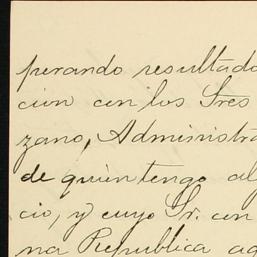 perando resultado
cion con los Sres
zano, Administra
de quien tengo al
cio, y cuyo Sr. con
na Republica ag